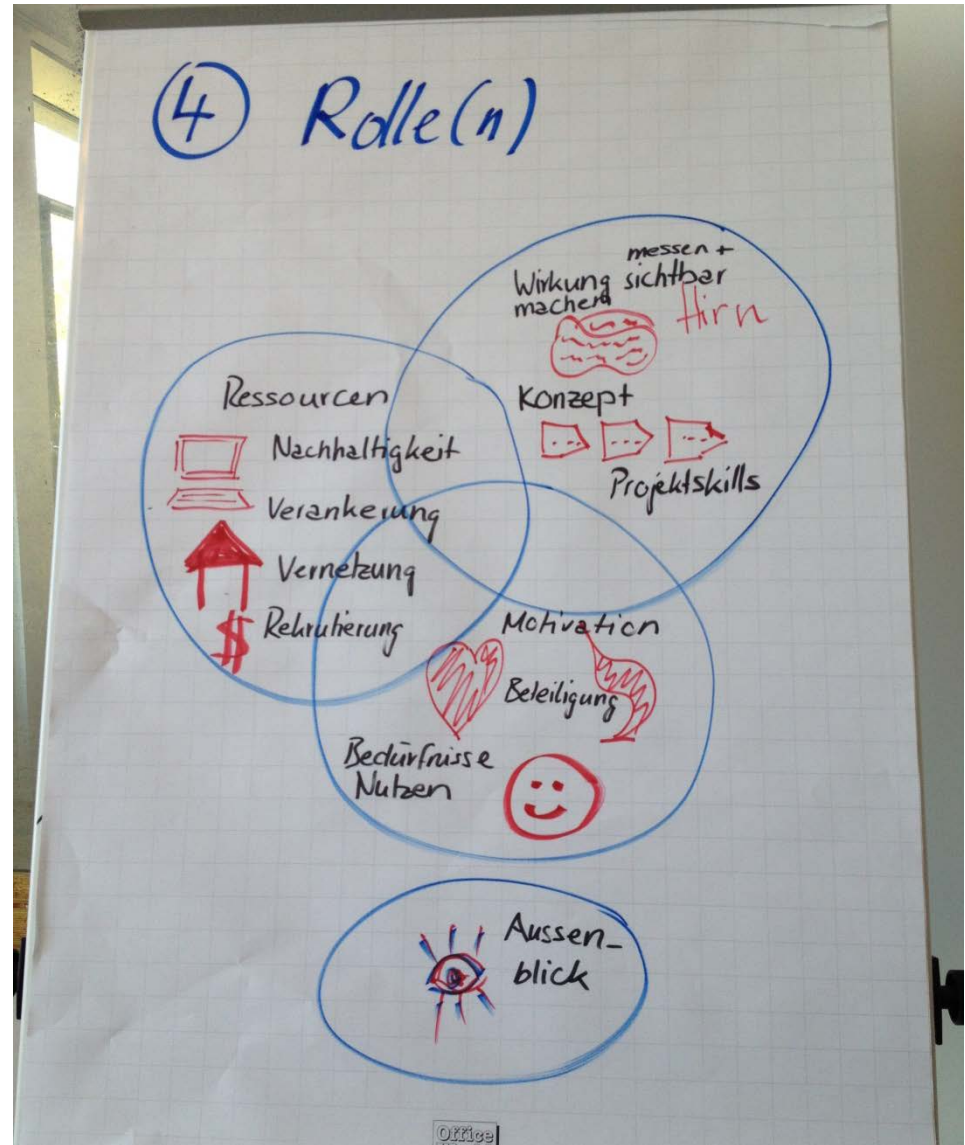 4 Rolle(n)
messen +
Wirkung sichtbar
machen
Hirn
Konzept
Projektskills
Ressourcen
Nachhaltigkeit
Verankerung
Vernetzung
$ Rekrutierung
Motivation
Beteiligung
Bedürfnisse
Nutzen
Aussen-
blick
Office